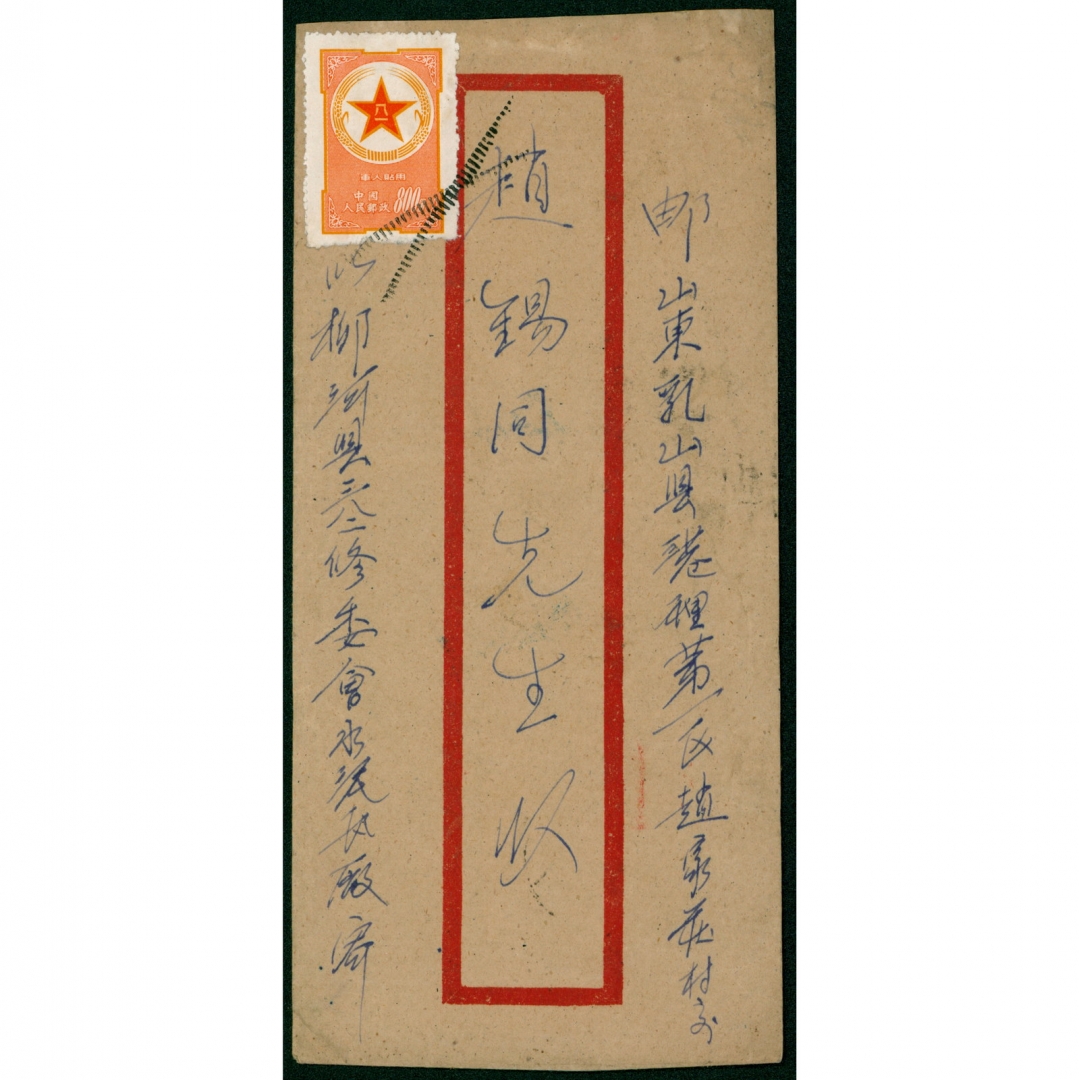 邮山東乳山县港裡第一区趙家莊村交
趙錫同先生收
柳河县三八二修委會水泥瓦廠寄
八一
軍人貼用
中國
人民郵政 800